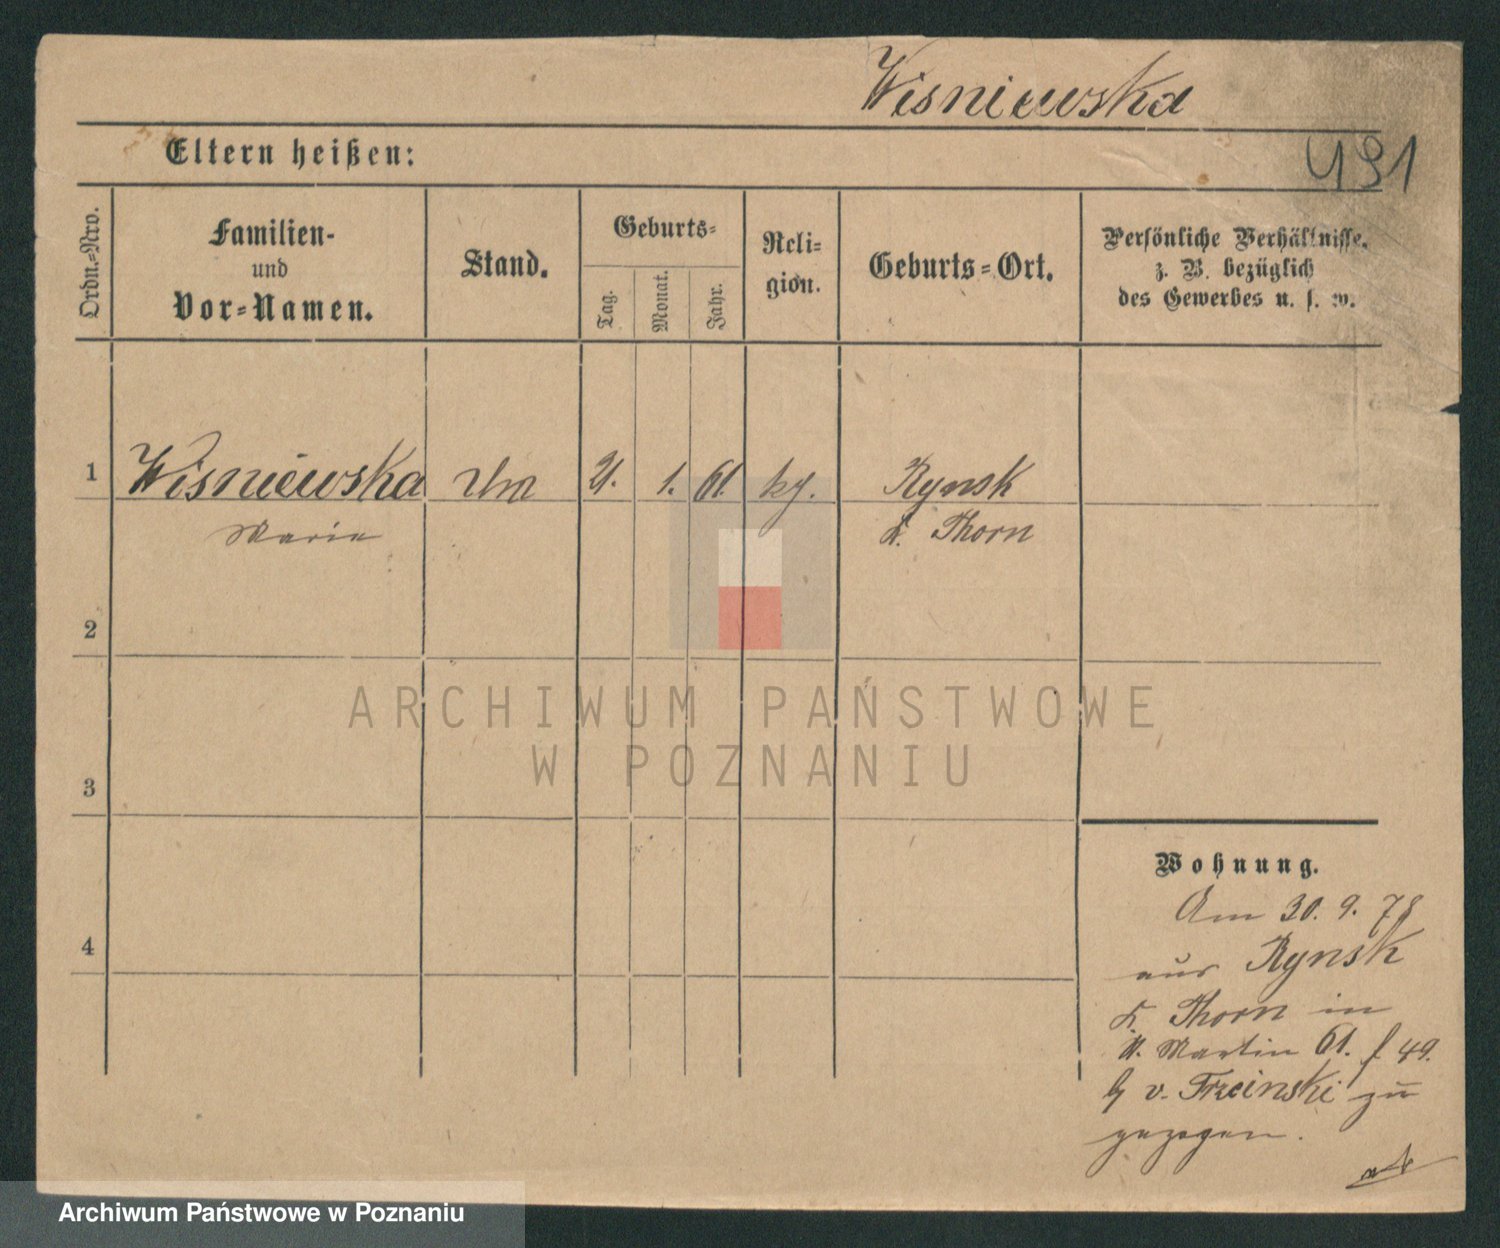 Wisniewska
491
Eltern heißen:
Ordn.-Nro.
Familien-
und
Vor-Namen.
Stand.
Geburts-
Tag.
Monat.
Jahr.
Reli-
gion.
Geburts-Ort.
Persönliche Verhältnisse.
z. B. bezüglich
des Gewerbes u. s. w.
1
Wisniewska
21. 1. 61.
Rynsk
Marie
K. Thorn
2
3
4
Wohnung.
Am 30. 9. 78
aus Rynsk
K. Thorn in
St. Martin 61. f 49.
v. Trzcinski zu
gezogen.
ARCHIWUM PAŃSTWOWE
W POZNANIU
Archiwum Państwowe w Poznaniu